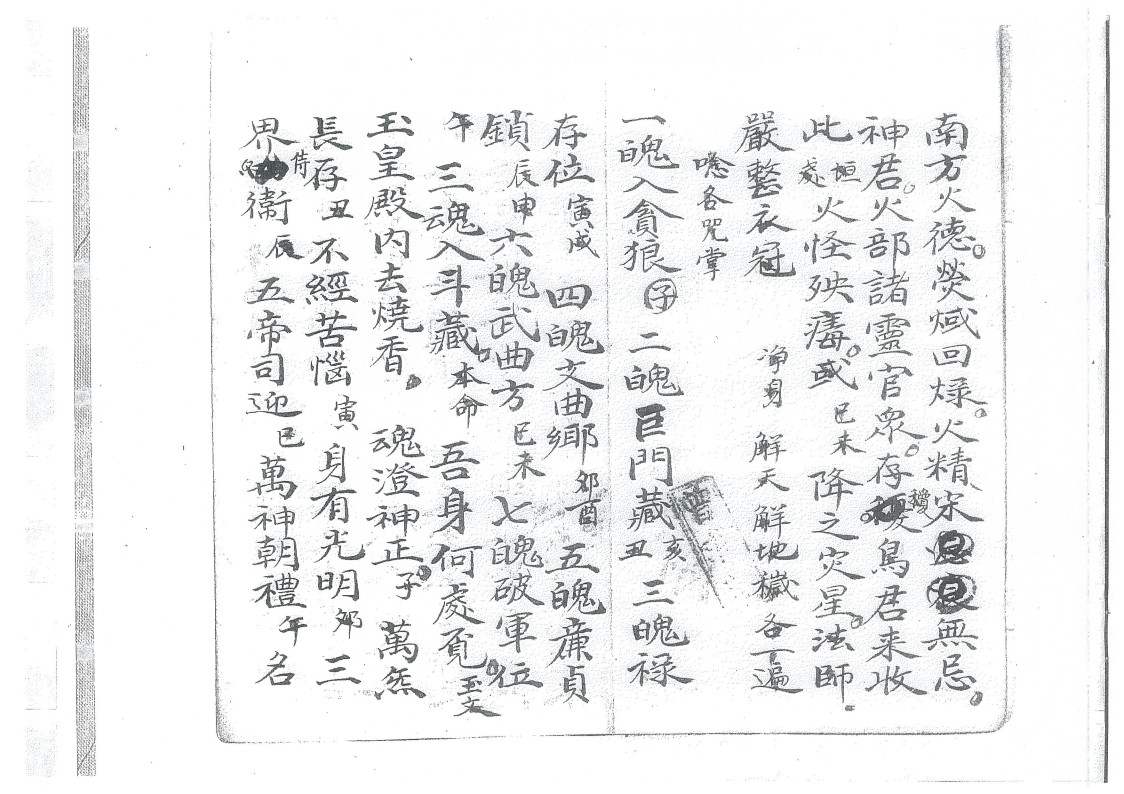 南方火德。熒惑回煣。火精宋無忌。
神君。火部諸靈官眾。存鳥君来收
此垣處火怪殃瘺。或巳未降之灾星。法師
嚴整衣冠 净身 解天解地穢各一遍
唸各咒掌
一魄入貪狼子二魄巨門藏丑亥三魄禄
存位寅戌四魄文曲鄉卯酉五魄亷貞
鎖辰申六魄武曲方巳未七魄破軍位
午三魂入斗藏本命吾身何處覓。玉文
玉皇殿内去燒香。魂澄神正。子萬炁
長存丑不經苦惱寅身有光明卯三
界侍衛辰五帝司迎巳萬神朝禮午名